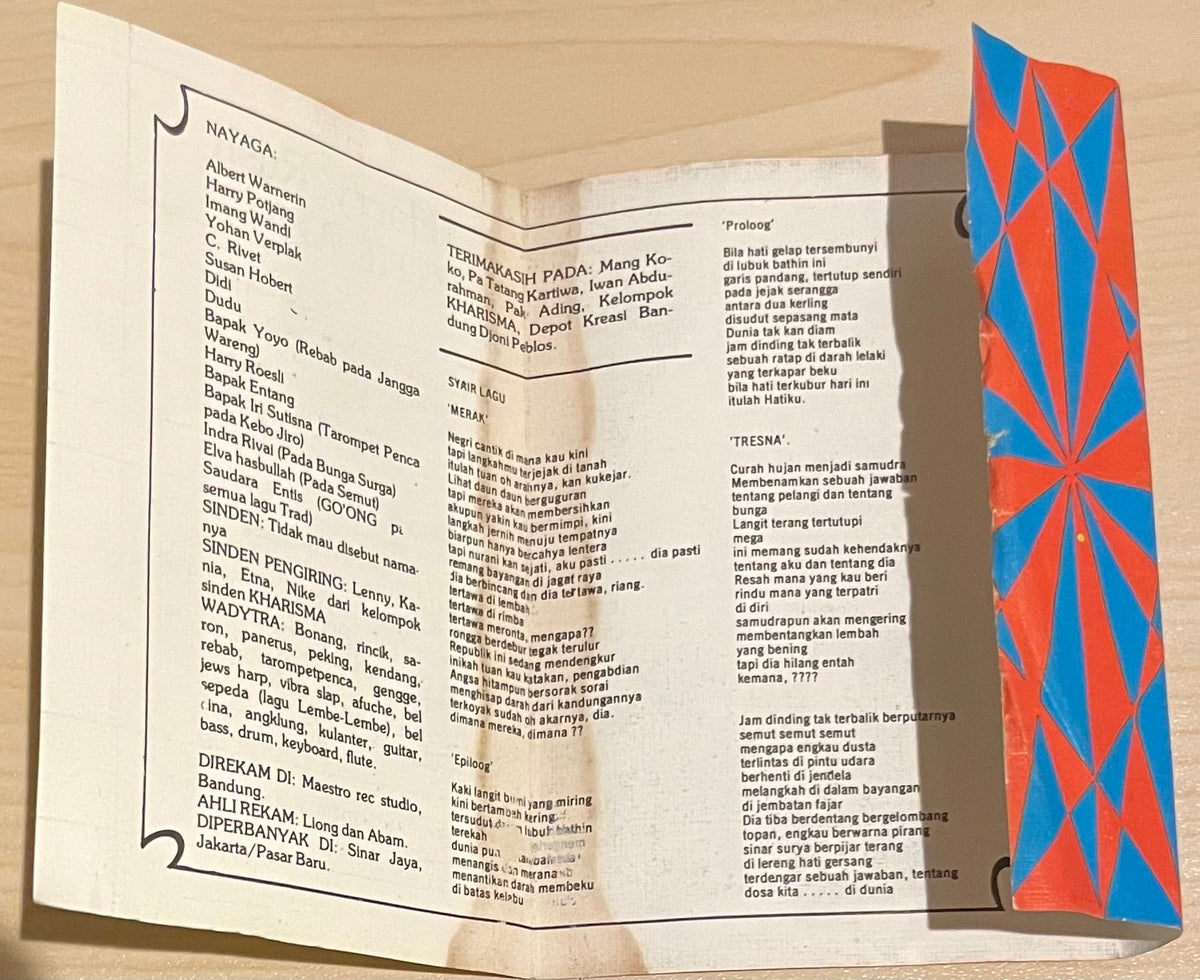 NAYAGA:
Albert Warnerin
Harry Potjang
Imang Wandi
Yohan Verplak
C. Rivet
Susan Hobert
Didi
Dudu
Bapak Yoyo (Rebab pada Jangga
Wareng)
Harry Roesli
Bapak Entang
Bapak Iri Sutisna (Tarompet Penca
pada Kebo Jiro)
Indra Rivai (Pada Bunga Surga)
Elva hasbullah (Pada Semut)
Saudara Entis (GO'ONG
semua lagu Trad)
SINDEN: Tidak mau disebut nama-
nya
SINDEN PENGIRING: Lenny, Ka-
nia, Etna, Nike dari kelompok
sinden KHARISMA
WADYTRA: Bonang, rincik, sa-
ron, panerus, peking, kendang,
rebab, tarompetpenca, gengge,
jews harp, vibra slap, afuche, bel
sepeda (lagu Lembe-Lembe), bel
cina, angklung, kulanter, guitar,
bass, drum, keyboard, flute.
DIREKAM DI: Maestro rec studio,
Bandung.
AHLI REKAM: Liong dan Abam.
DIPERBANYAK DI: Sinar Jaya,
Jakarta/Pasar Baru.
TERIMAKASIH PADA: Mang Ko-
ko, Pa Tatang Kartiwa, Iwan Abdu-
rahman, Pak Ading, Kelompok
KHARISMA, Depot Kreasi Ban-
dung Djoni Peblos.
SYAIR LAGU
'MERAK'
Negri cantik di mana kau kini
tapi langkahmu terjejak di tanah
itulah tuan oh arahnya, kan kukejar.
Lihat daun daun berguguran
tapi mereka akan membersihkan
akupun yakin kau bermimpi, kini
langkah jernih menuju tempatnya
biarpun hanya bercahya lentera
tapi nurani kan sejati, aku pasti ..... dia pasti
remang bayangan di jagat raya
dia berbincang dan dia tertawa, riang.
tertawa di lembah
tertawa di rimba
tertawa meronta, mengapa??
rongga berdebur tegak terulur
Republik ini sedang mendengkur
inikah tuan kau katakan, pengabdian
Angsa hitampun bersorak sorai
menghisap darah dari kandungannya
terkoyak sudah oh akarnya, dia.
dimana mereka, dimana ??
'Epiloog'
Kaki langit bumi yang miring
kini bertambah kering
tersudut lubuk bathin
terekah
dunia pun
menangis dan merana
menantikan darah membeku
di batas kelabu
'Proloog'
Bila hati gelap tersembunyi
di lubuk bathin ini
garis pandang, tertutup sendiri
pada jejak serangga
antara dua kerling
disudut sepasang mata
Dunia tak kan diam
jam dinding tak terbalik
sebuah ratap di darah lelaki
yang terkapar beku
bila hati terkubur hari ini
itulah Hatiku.
'TRESNA'.
Curah hujan menjadi samudra
Membenamkan sebuah jawaban
tentang pelangi dan tentang
bunga
Langit terang tertutupi
mega
ini memang sudah kehendaknya
tentang aku dan tentang dia
Resah mana yang kau beri
rindu mana yang terpatri
di diri
samudrapun akan mengering
membentangkan lembah
yang bening
tapi dia hilang entah
kemana, ????
Jam dinding tak terbalik berputarnya
semut semut semut
mengapa engkau dusta
terlintas di pintu udara
berhenti di jendela
melangkah di dalam bayangan
di jembatan fajar
Dia tiba berdentang bergelombang
topan, engkau berwarna pirang
sinar surya berpijar terang
di lereng hati gersang
terdengar sebuah jawaban, tentang
dosa kita ..... di dunia